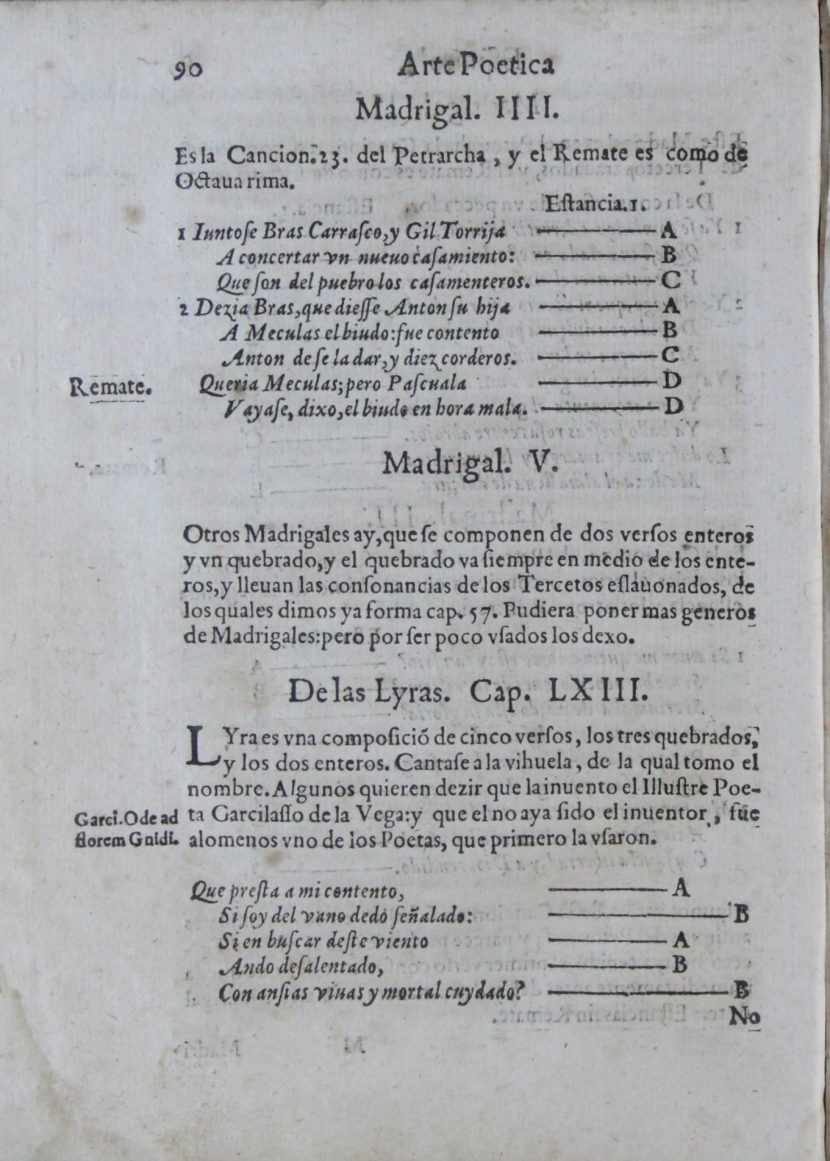 90 Arte Poetica
Madrigal. IIII.
Es la Cancion.23. del Petrarcha, y el Remate es como de
Octaua rima.
Eſtancia.1.
1 Iuntoſe Bras Carraſco,y Gil Torrija A
A concertar vn nueuo caſamiento: B
Que ſon del pueblo los caſamenteros. C
2 Dezia Bras,que dieſſe Anton ſu hija A
A Meculas el biudo:fue contento B
Anton de ſe la dar,y diez corderos. C
Remate. Queria Meculas;pero Paſcuala D
Vayaſe, dixo,el biudo en hora mala. D
Madrigal. V.
Otros Madrigales ay,que ſe componen de dos verſos enteros
y vn quebrado,y el quebrado va ſiempre en medio de los ente-
ros,y lleuan las conſonancias de los Tercetos eſlauonados, de
los quales dimos ya forma cap. 57. Pudiera poner mas generos
de Madrigales:pero por ſer poco vſados los dexo.
De las Lyras. Cap. LXIII.
LYra es vna compoſició de cinco verſos, los tres quebrados,
y los dos enteros. Cantaſe a la vihuela, de la qual tomo el
nombre. Algunos quieren dezir que la inuento el Illuſtre Poe-
Garci.Ode ad ta Garcilaſſo de la Vega:y que el no aya ſido el inuentor, fue
florem Gnidi. alomenos vno de los Poetas, que primero la vſaron.
Que preſta a mi contento, A
Si ſoy del vano dedo ſeñalado: B
Si en buſcar deſte viento A
Ando deſalentado, B
Con anſias viuas y mortal cuydado? B
No